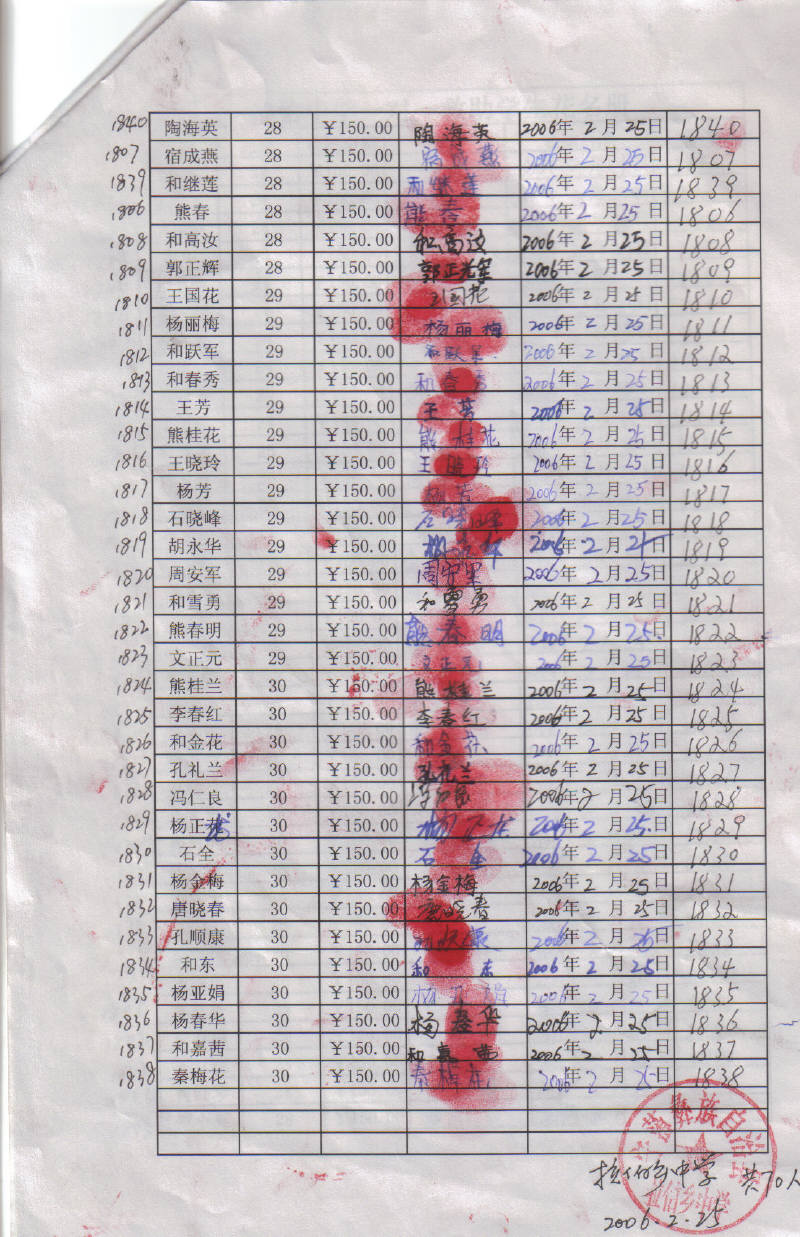 1840 陶海英 28 ￥150.00 陶海英 2006年2月25日 1840
1807 宿成燕 28 ￥150.00 宿成燕 2006年2月25日 1807
1839 和继莲 28 ￥150.00 和继莲 2006年2月25日 1839
1806 熊春 28 ￥150.00 熊春 2006年2月25日 1806
1808 和高汝 28 ￥150.00 和高汝 2006年2月25日 1808
1809 郭正辉 28 ￥150.00 郭正光军 2006年2月25日 1809
1810 王国花 29 ￥150.00 王国花 2006年2月25日 1810
1811 杨丽梅 29 ￥150.00 杨丽梅 2006年2月25日 1811
1812 和跃军 29 ￥150.00 和跃军 2006年2月25日 1812
1813 和春秀 29 ￥150.00 和春秀 2006年2月25日 1813
1814 王芳 29 ￥150.00 王芳 2006年2月25日 1814
1815 熊桂花 29 ￥150.00 熊桂花 2006年2月25日 1815
1816 王晓玲 29 ￥150.00 王晓玲 2006年2月25日 1816
1817 杨芳 29 ￥150.00 杨芳 2006年2月25日 1817
1818 石晓峰 29 ￥150.00 石晓峰 2006年2月25日 1818
1819 胡永华 29 ￥150.00 胡 2006年2月2日 1819
1820 周安军 29 ￥150.00 周安军 2006年2月25日 1820
1821 和雪勇 29 ￥150.00 和雪勇 2006年2月25日 1821
1822 熊春明 29 ￥150.00 熊春明 2006年2月25日 1822
1823 文正元 29 ￥150.00 文正元 2006年2月25日 1823
1824 熊桂兰 30 ￥150.00 熊桂兰 2006年2月25日 1824
1825 李春红 30 ￥150.00 李春红 2006年2月25日 1825
1826 和金花 30 ￥150.00 和金花 2006年2月25日 1826
1827 孔礼兰 30 ￥150.00 孔礼兰 2006年2月25日 1827
1828 冯仁良 30 ￥150.00 冯仁良 2006年2月25日 1828
1829 杨正 30 ￥150.00 杨正 2006年2月25日 1829
1830 石全 30 ￥150.00 石全 2006年2月25日 1830
1831 杨金梅 30 ￥150.00 杨金梅 2006年2月25日 1831
1832 唐晓春 30 ￥150.00 唐晓春 2006年2月25日 1832
1833 孔顺康 30 ￥150.00 康 2006年2月26日 1833
1834 和东 30 ￥150.00 和东 2006年2月25日 1834
1835 杨亚娟 30 ￥150.00 杨亚娟 2006年2月25日 1835
1836 杨春华 30 ￥150.00 杨春华 2006年2月25日 1836
1837 和嘉茜 30 ￥150.00 和嘉茜 2006年2月25日 1837
1838 秦梅花 30 ￥150.00 秦梅花 2006年2月25日 1838
彝族自治
乡中学 共70人
2006.2.25